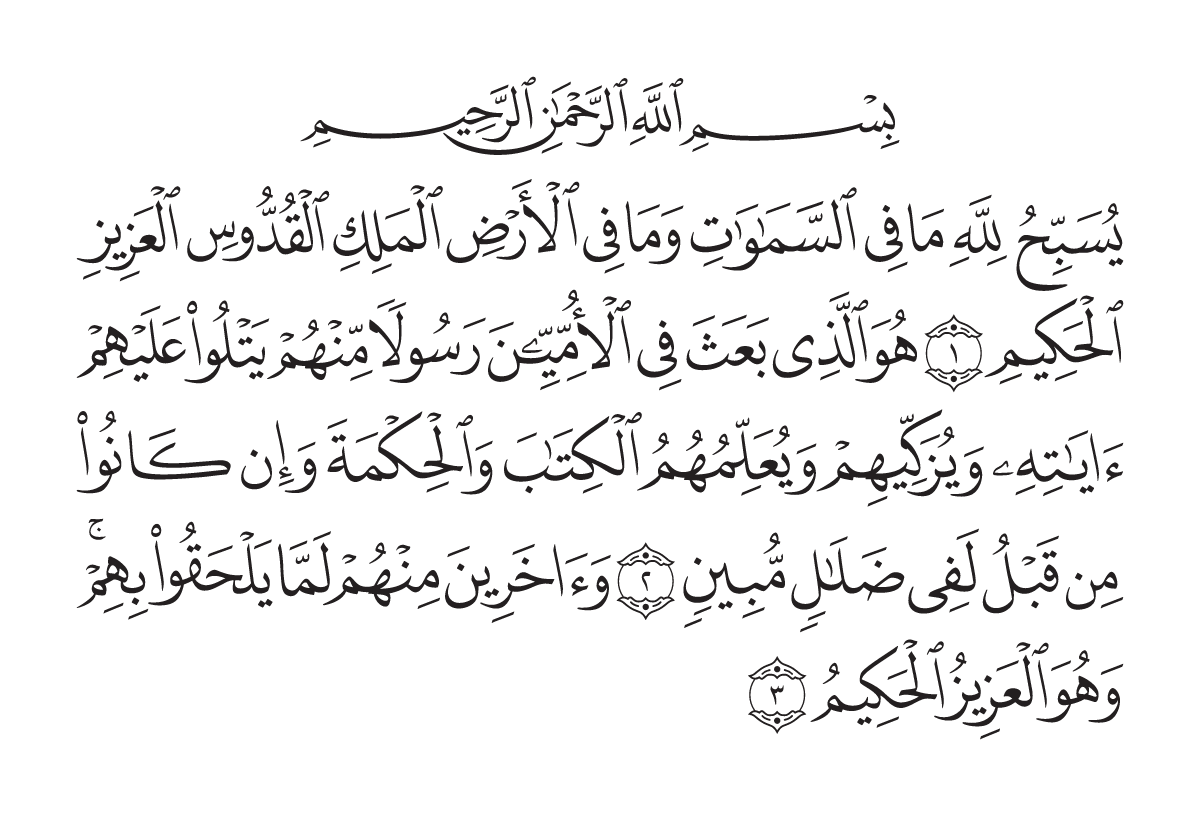 بِسْمِ ٱللَّهِ ٱلرَّحْمَٰنِ ٱلرَّحِيمِ
يُسَبِّحُ لِلَّهِ مَا فِى ٱلسَّمَٰوَٰتِ وَمَا فِى ٱلْأَرْضِ ٱلْمَلِكِ ٱلْقُدُّوسِ ٱلْعَزِيزِ
ٱلْحَكِيمِ ١ هُوَ ٱلَّذِى بَعَثَ فِى ٱلْأُمِّيِّـۧنَ رَسُولًا مِّنْهُمْ يَتْلُوا۟ عَلَيْهِمْ
ءَايَٰتِهِۦ وَيُزَكِّيهِمْ وَيُعَلِّمُهُمُ ٱلْكِتَٰبَ وَٱلْحِكْمَةَ وَإِن كَانُوا۟
مِن قَبْلُ لَفِى ضَلَٰلٍ مُّبِينٍ ٢ وَءَاخَرِينَ مِنْهُمْ لَمَّا يَلْحَقُوا۟ بِهِمْ ۚ
وَهُوَ ٱلْعَزِيزُ ٱلْحَكِيمُ ٣